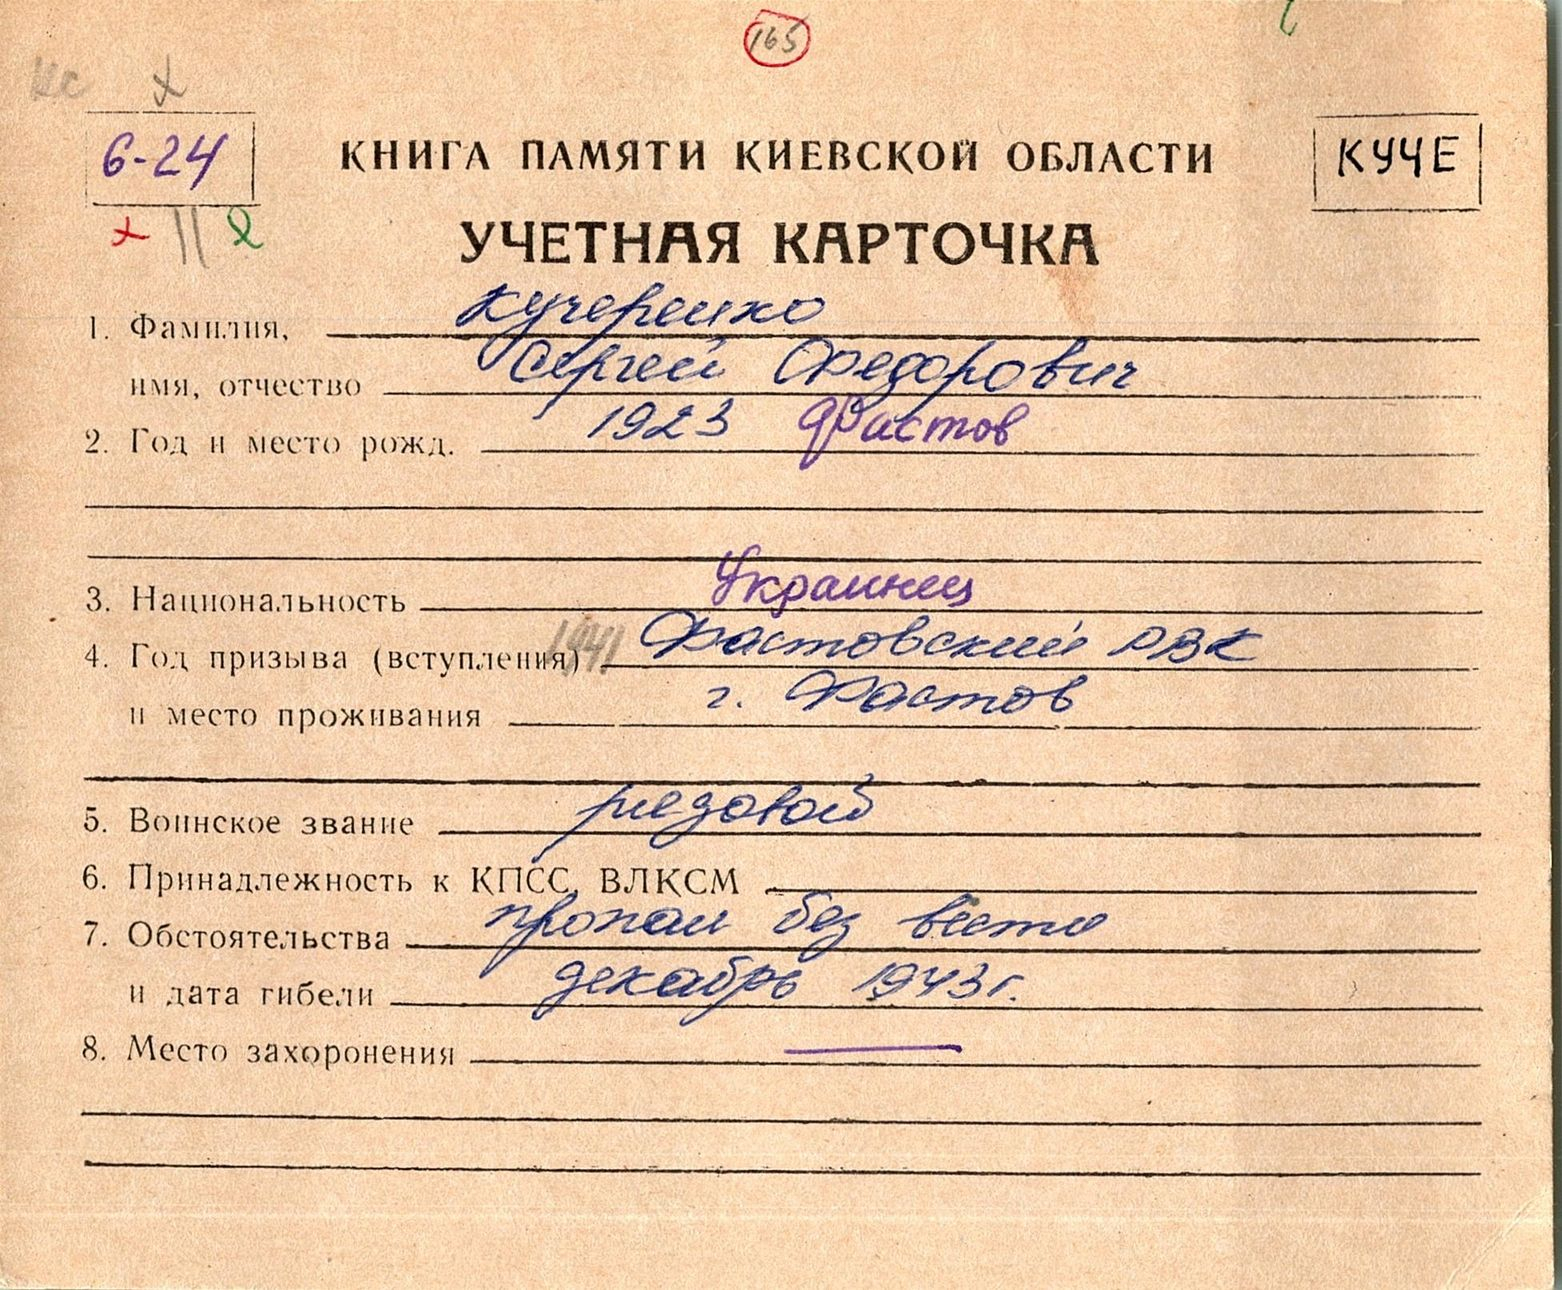 165
Кс х
6-24
КНИГА ПАМЯТИ КИЕВСКОЙ ОБЛАСТИ
КУЧЕ
УЧЕТНАЯ КАРТОЧКА
1. Фамилия, Кучеренко
имя, отчество Сергей Федорович
2. Год и место рожд. 1923 Фастов
3. Национальность Украинец
4. Год призыва (вступления) 1941 Фастовский РВК
и место проживания г. Фастов
5. Воинское звание рядовой
6. Принадлежность к КПСС, ВЛКСМ
7. Обстоятельства пропал без вести
и дата гибели декабрь 1943 г.
8. Место захоронения —